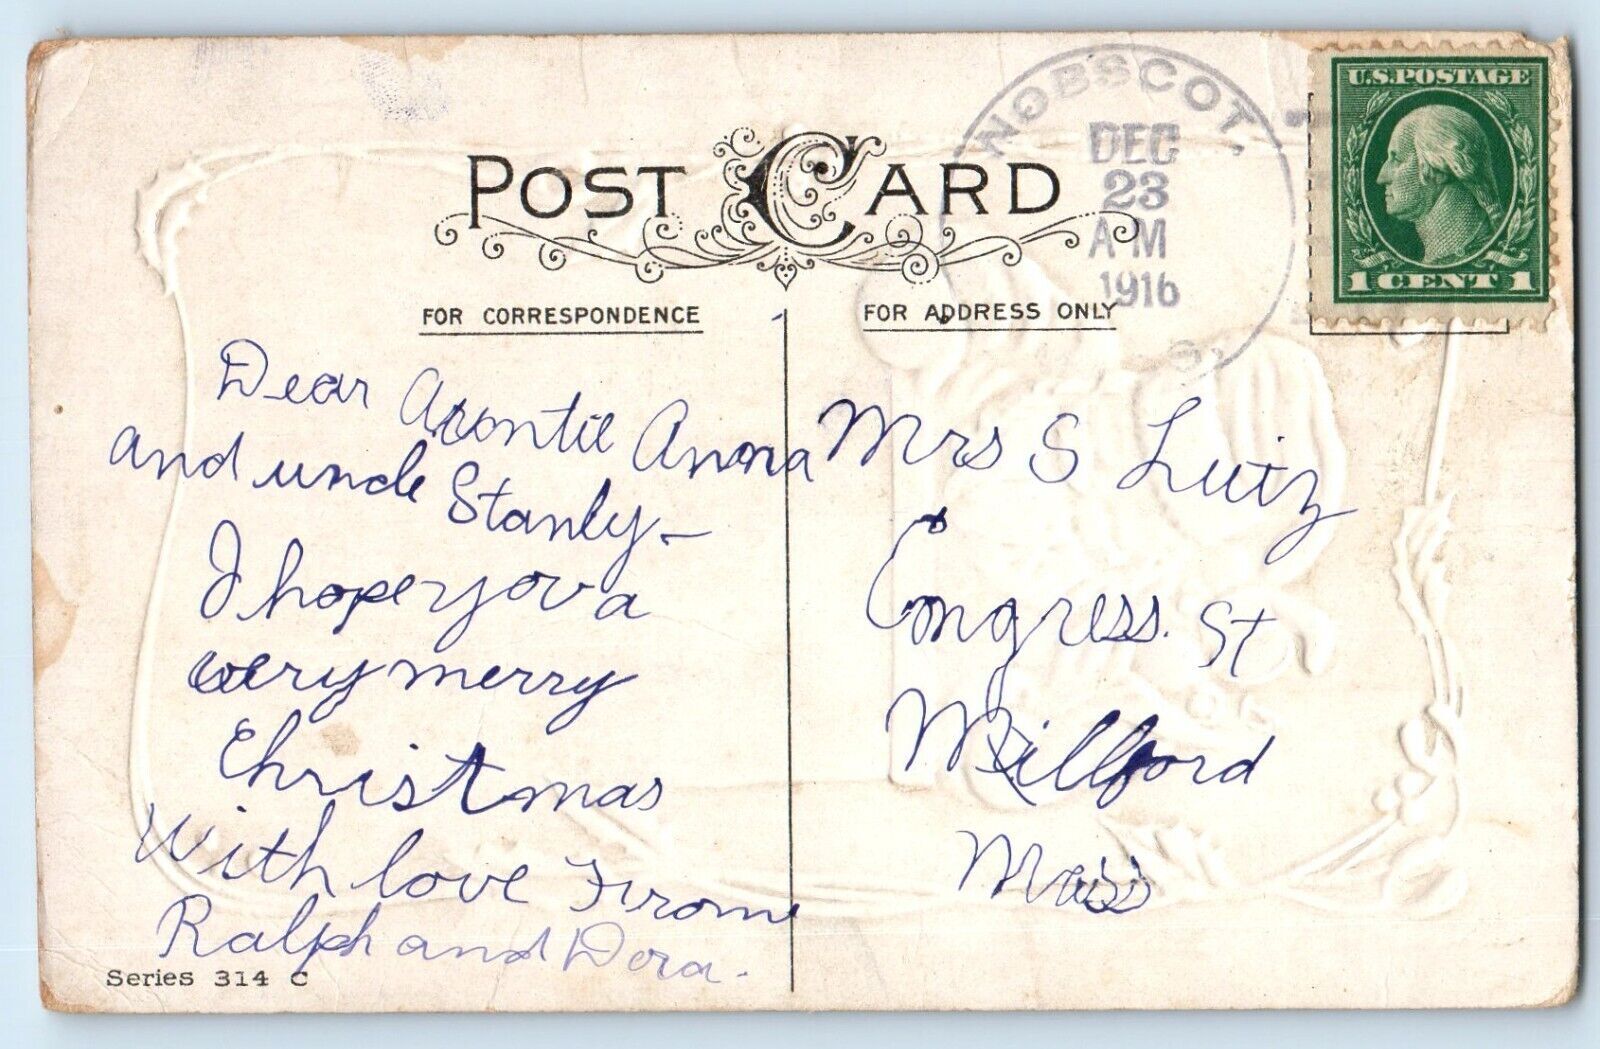 POST CARD
NOBSCOT,
DEC
23
AM
1916
S.
U.S.POSTAGE
1 CENT 1
FOR CORRESPONDENCE
FOR ADDRESS ONLY
Dear Auntie Anna
and uncle Stanly-
I hope you a
very merry
Christmas
With love From
Ralph and Dora.
Mrs S Luiz
Congress. St
Millford
Mass
Series 314 C